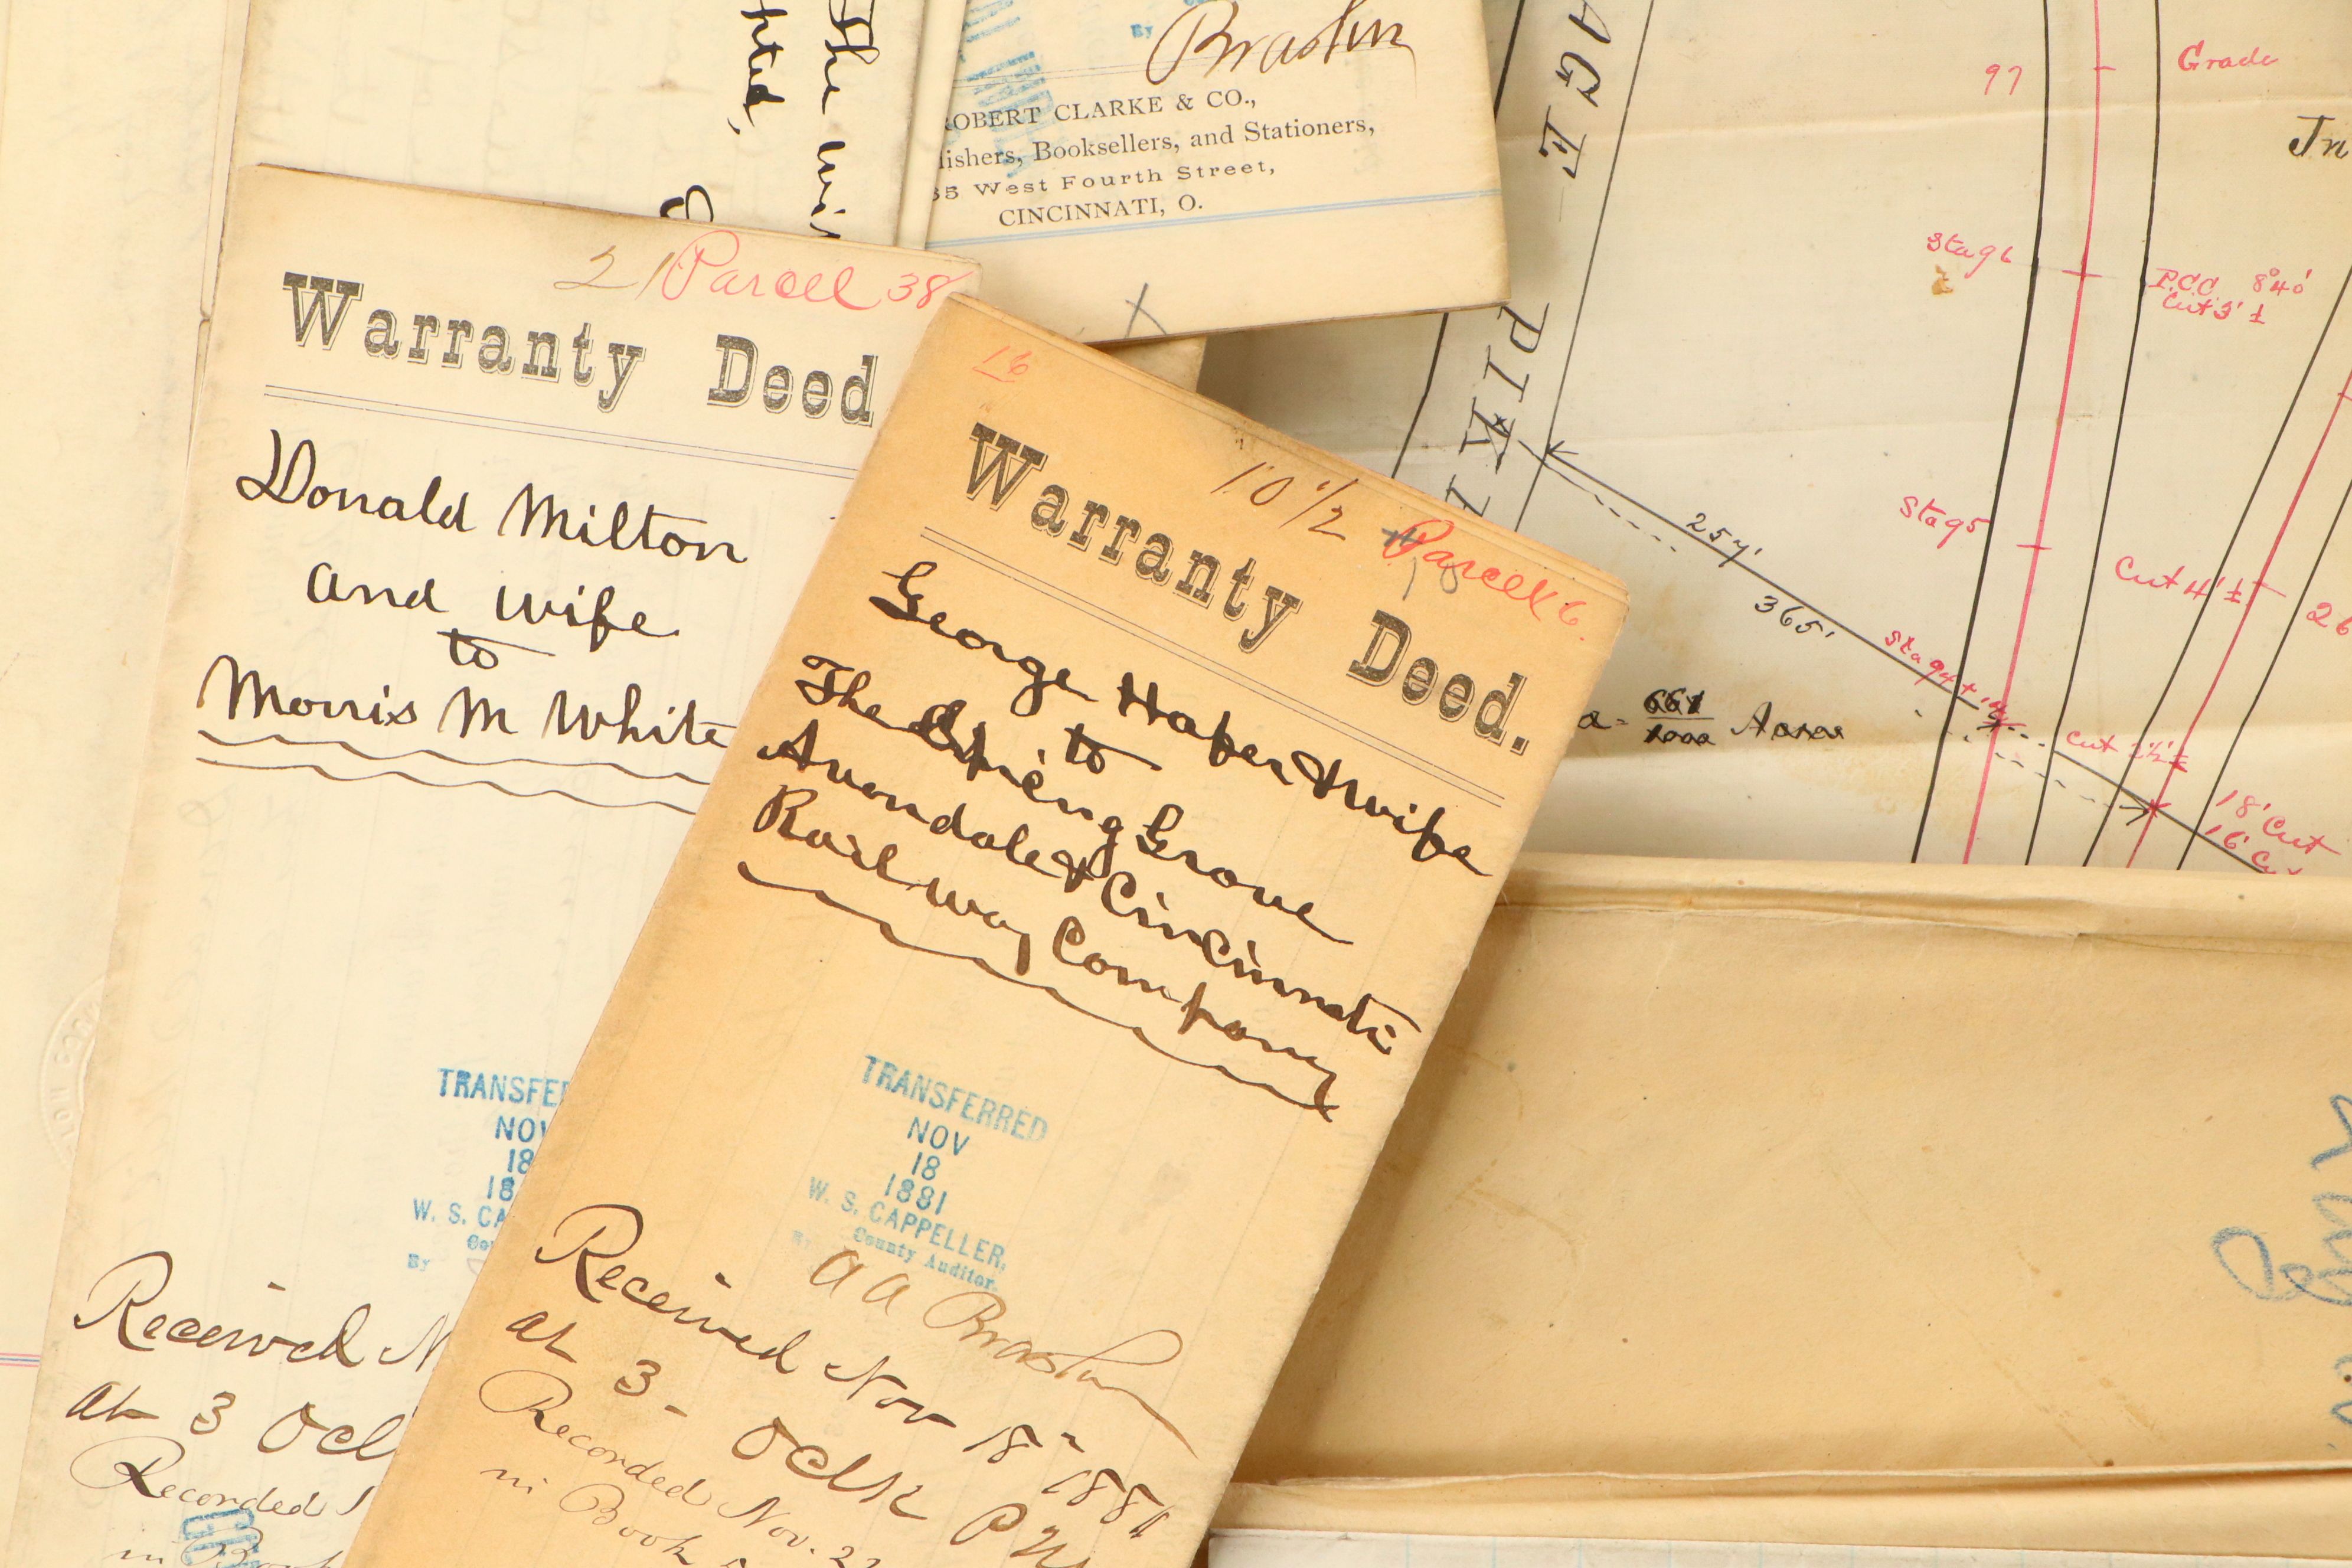 The
hted,
By Brashin
ROBERT CLARKE & CO.,
lishers, Booksellers, and Stationers,
35 West Fourth Street,
CINCINNATI, O.
21 Parcel 38
Warranty Deed
Donald Milton
and wife
to
Morris M White
TRANSFE
NOV
18
18
W. S. CA
Co
By
Received N
at 3 Ocl
Recorded
in Book
16
10 1/2 Parcel 6.
18
Warranty Deed.
George Hafer & wife
to
The Spring Grove
Avondale & Cincinnati
Railway Company
TRANSFERRED
NOV
18
1881
W. S. CAPPELLER,
County Auditor.
By A A Brashin
Received Nov 18 - 1881
at 3 - Oclk P M
Recorded Nov. 22
in Book
AGE PIK
97
Grade
In
Sta 96
P.C.C. 8°40'
Cut 3' ±
Sta 95
Cut 4' ±
26
257'
365'
Sta 94 +
a = 661/1000 Acres
Cut 2½' ±
18' Cut
16' C